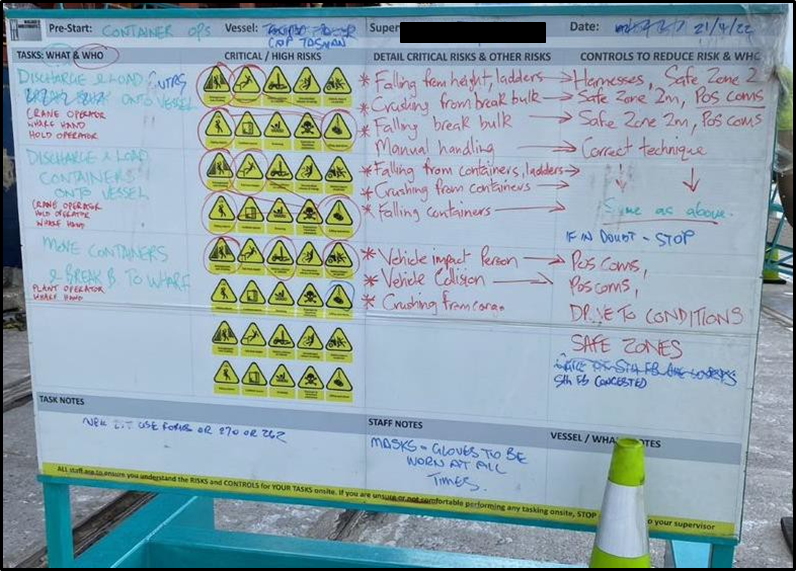 Pre-Start: CONTAINER OPS Vessel: CAP TASMAN Super Date: 21/4/22
TASKS: WHAT & WHO CRITICAL / HIGH RISKS DETAIL CRITICAL RISKS & OTHER RISKS CONTROLS TO REDUCE RISK & WHO
DISCHARGE & LOAD
ONTO VESSEL
CRANE OPERATOR
WHARF HAND
HOLD OPERATOR
* Falling from height, ladders → Harnesses, Safe Zone 2
* Crushing from break bulk → Safe Zone 2m, Pos coms
* Falling break bulk → Safe Zone 2m, Pos coms
Manual handling → Correct technique
DISCHARGE & LOAD
CONTAINERS
ONTO VESSEL
CRANE OPERATOR
HOLD OPERATOR
WHARF HAND
* Falling from containers, ladders →
* Crushing from containers →
* Falling containers → Same as above.
IF IN DOUBT - STOP
MOVE CONTAINERS
& BREAK B TO WHARF
PLANT OPERATOR
WHARF HAND
* Vehicle impact Person → Pos coms,
* Vehicle Collision → Pos coms,
* Crushing from cargo DRIVE TO CONDITIONS
SAFE ZONES
5th FB CONGESTED
TASK NOTES
USE FORKS OR 270 OR 262
STAFF NOTES
MASKS - GLOVES TO BE
WORN AT ALL
TIMES.
VESSEL / NOTES
ALL staff are to ensure you understand the RISKS and CONTROLS for YOUR TASKS onsite. If you are unsure or not comfortable performing any tasking onsite, STOP to your supervisor